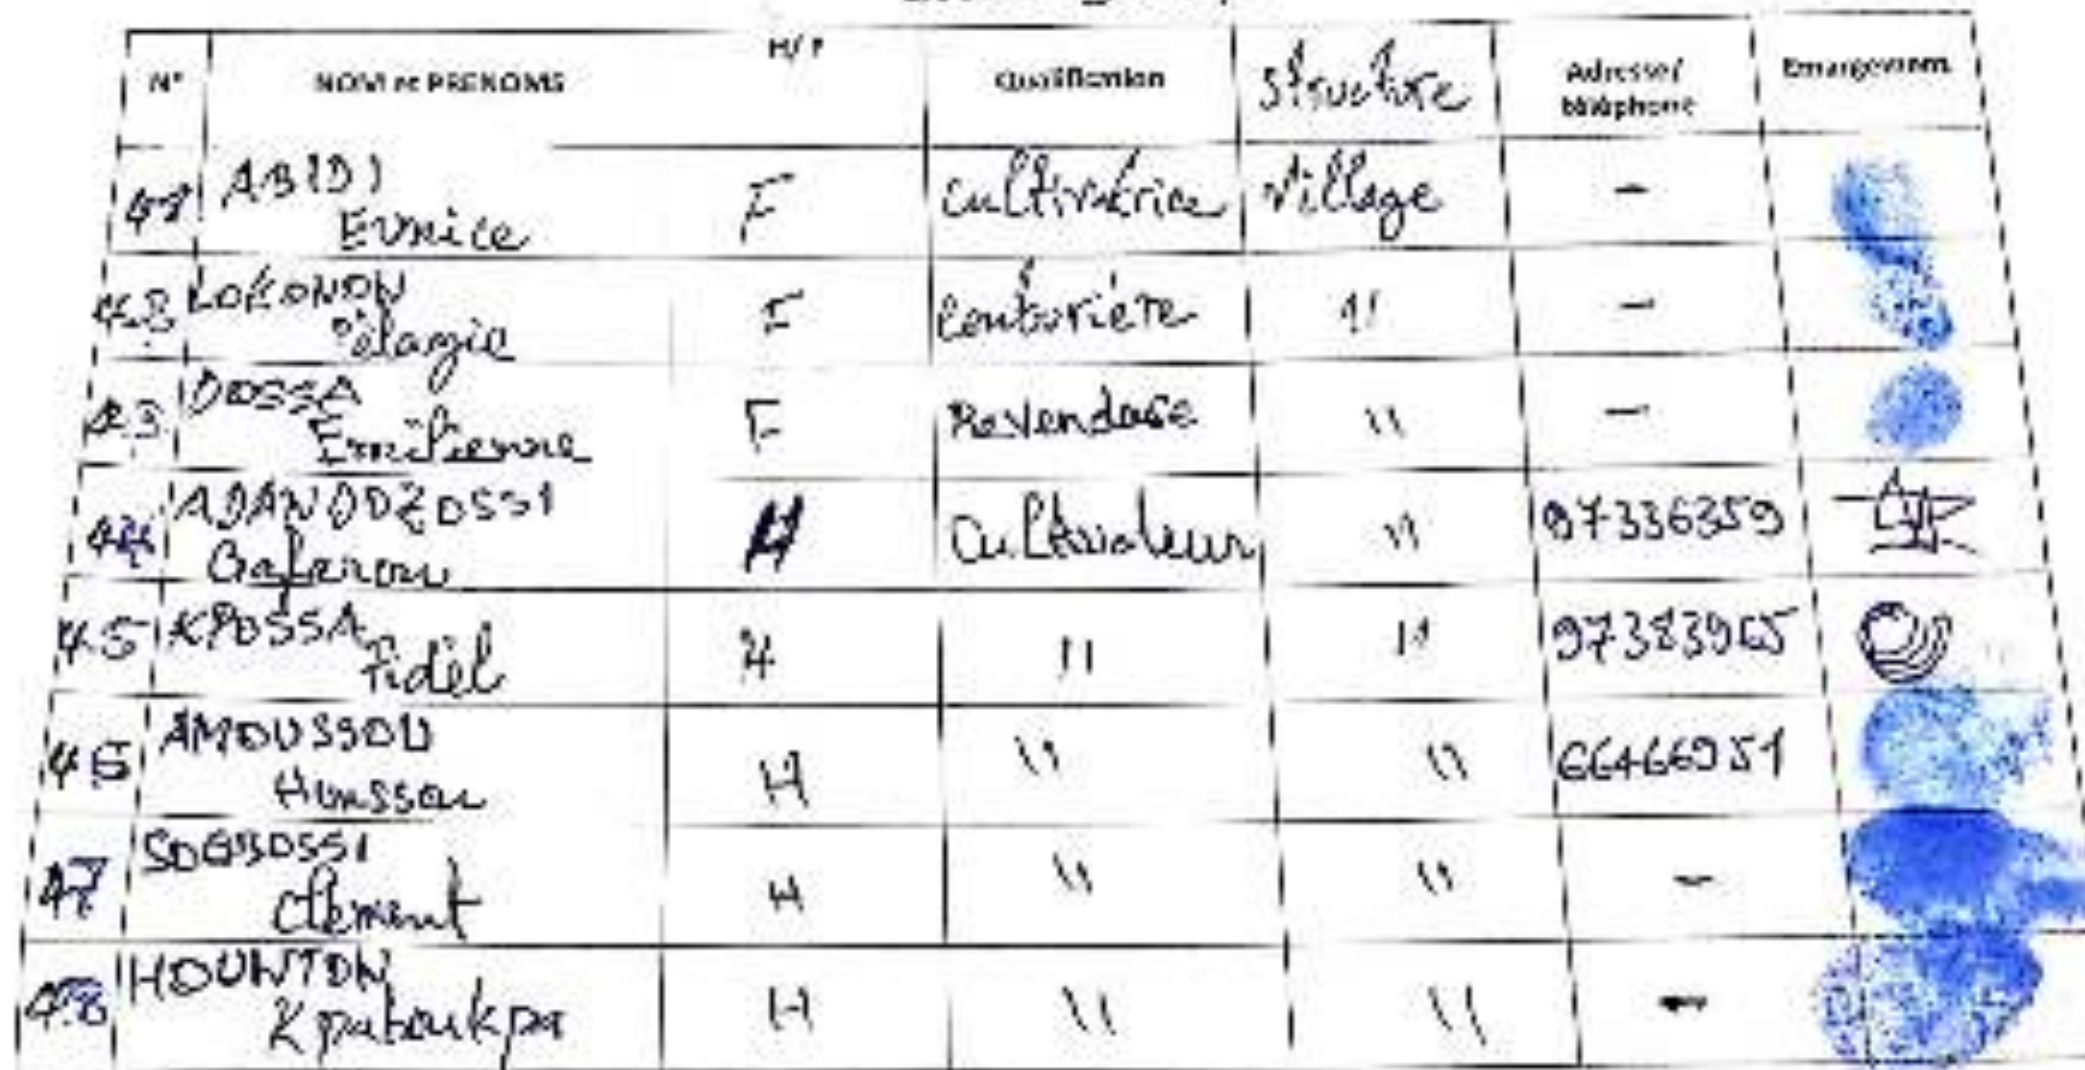 N° NOM et PRENOMS H/F Qualification Structure Adresse/ téléphone Emargement
41 ABIDI Eunice F Cultivatrice Village -
42 LOKONON Pélagie F Couturière 11 -
43 DOSSA Emilienne F Revendase 11 -
44 ADANDOZOSSI H Cultivateur 11 97336359
45 KPOSSA Fidèl H 11 11 97383965
46 AMOUSSOU H 11 11 66466951
47 SOGBOSSI Clément H 11 11 -
48 HOUNTON H 11 11 -